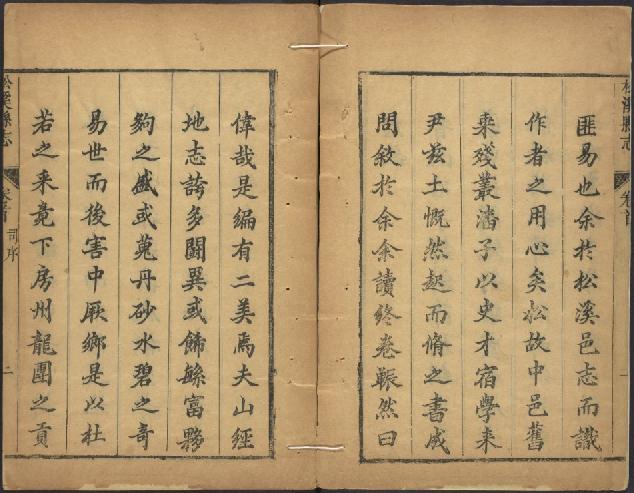 松溪縣志
卷首
一
匪易也余於松溪邑志而識
作者之用心矣松故中邑舊
乘殘叢潘子以史才宿學来
尹茲土慨然起而脩之書成
問敘於余余讀終卷冁然曰
偉哉是編有二美焉夫山經
地志誇多鬬異或飾緐富夥
夠之盛或蒐丹砂水碧之奇
易世而後害中厥鄉是以杜
若之来竟下房州龍團之貢
松溪縣志
卷首
司序
二